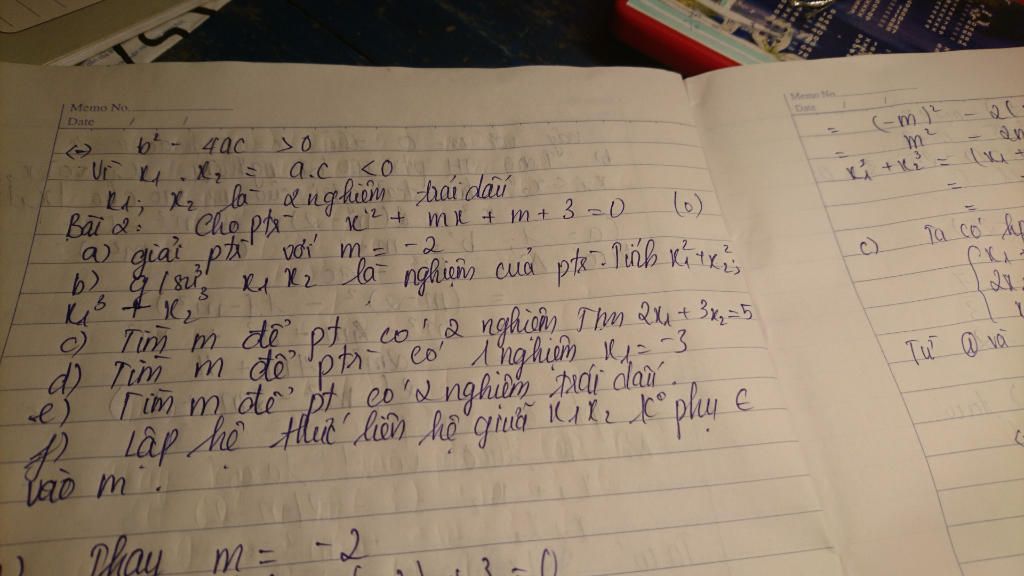 Memo No.
Date / /
<=> b² - 4ac > 0
Vì x₁ . x₂ = a.c < 0
x₁ ; x₂ là 2 nghiệm trái dấu
Bài 2: Cho ptr x² + mx + m + 3 = 0 (0)
a) giải ptr với m = -2
b) g/sử x₁ x₂ là nghiệm của ptr. Tính x₁² + x₂²;
x₁³ + x₂³
c) Tìm m để pt có 2 nghiệm Tm 2x₁ + 3x₂ = 5
d) Tìm m để ptr có 1 nghiệm x₁ = -3
e) Tìm m để pt có 2 nghiệm trái dấu.
f) Lập hệ thức liên hệ giữa x₁ x₂ k° phụ ∈
vào m.
Thay m = -2
+ 3 = 0
Memo No.
Date / /
= (-m)² - 2(
= m² - 2m
x₁³ + x₂³ = (x₁ +
=
=
c) Ta có
x₁ +
2x
Từ ① và